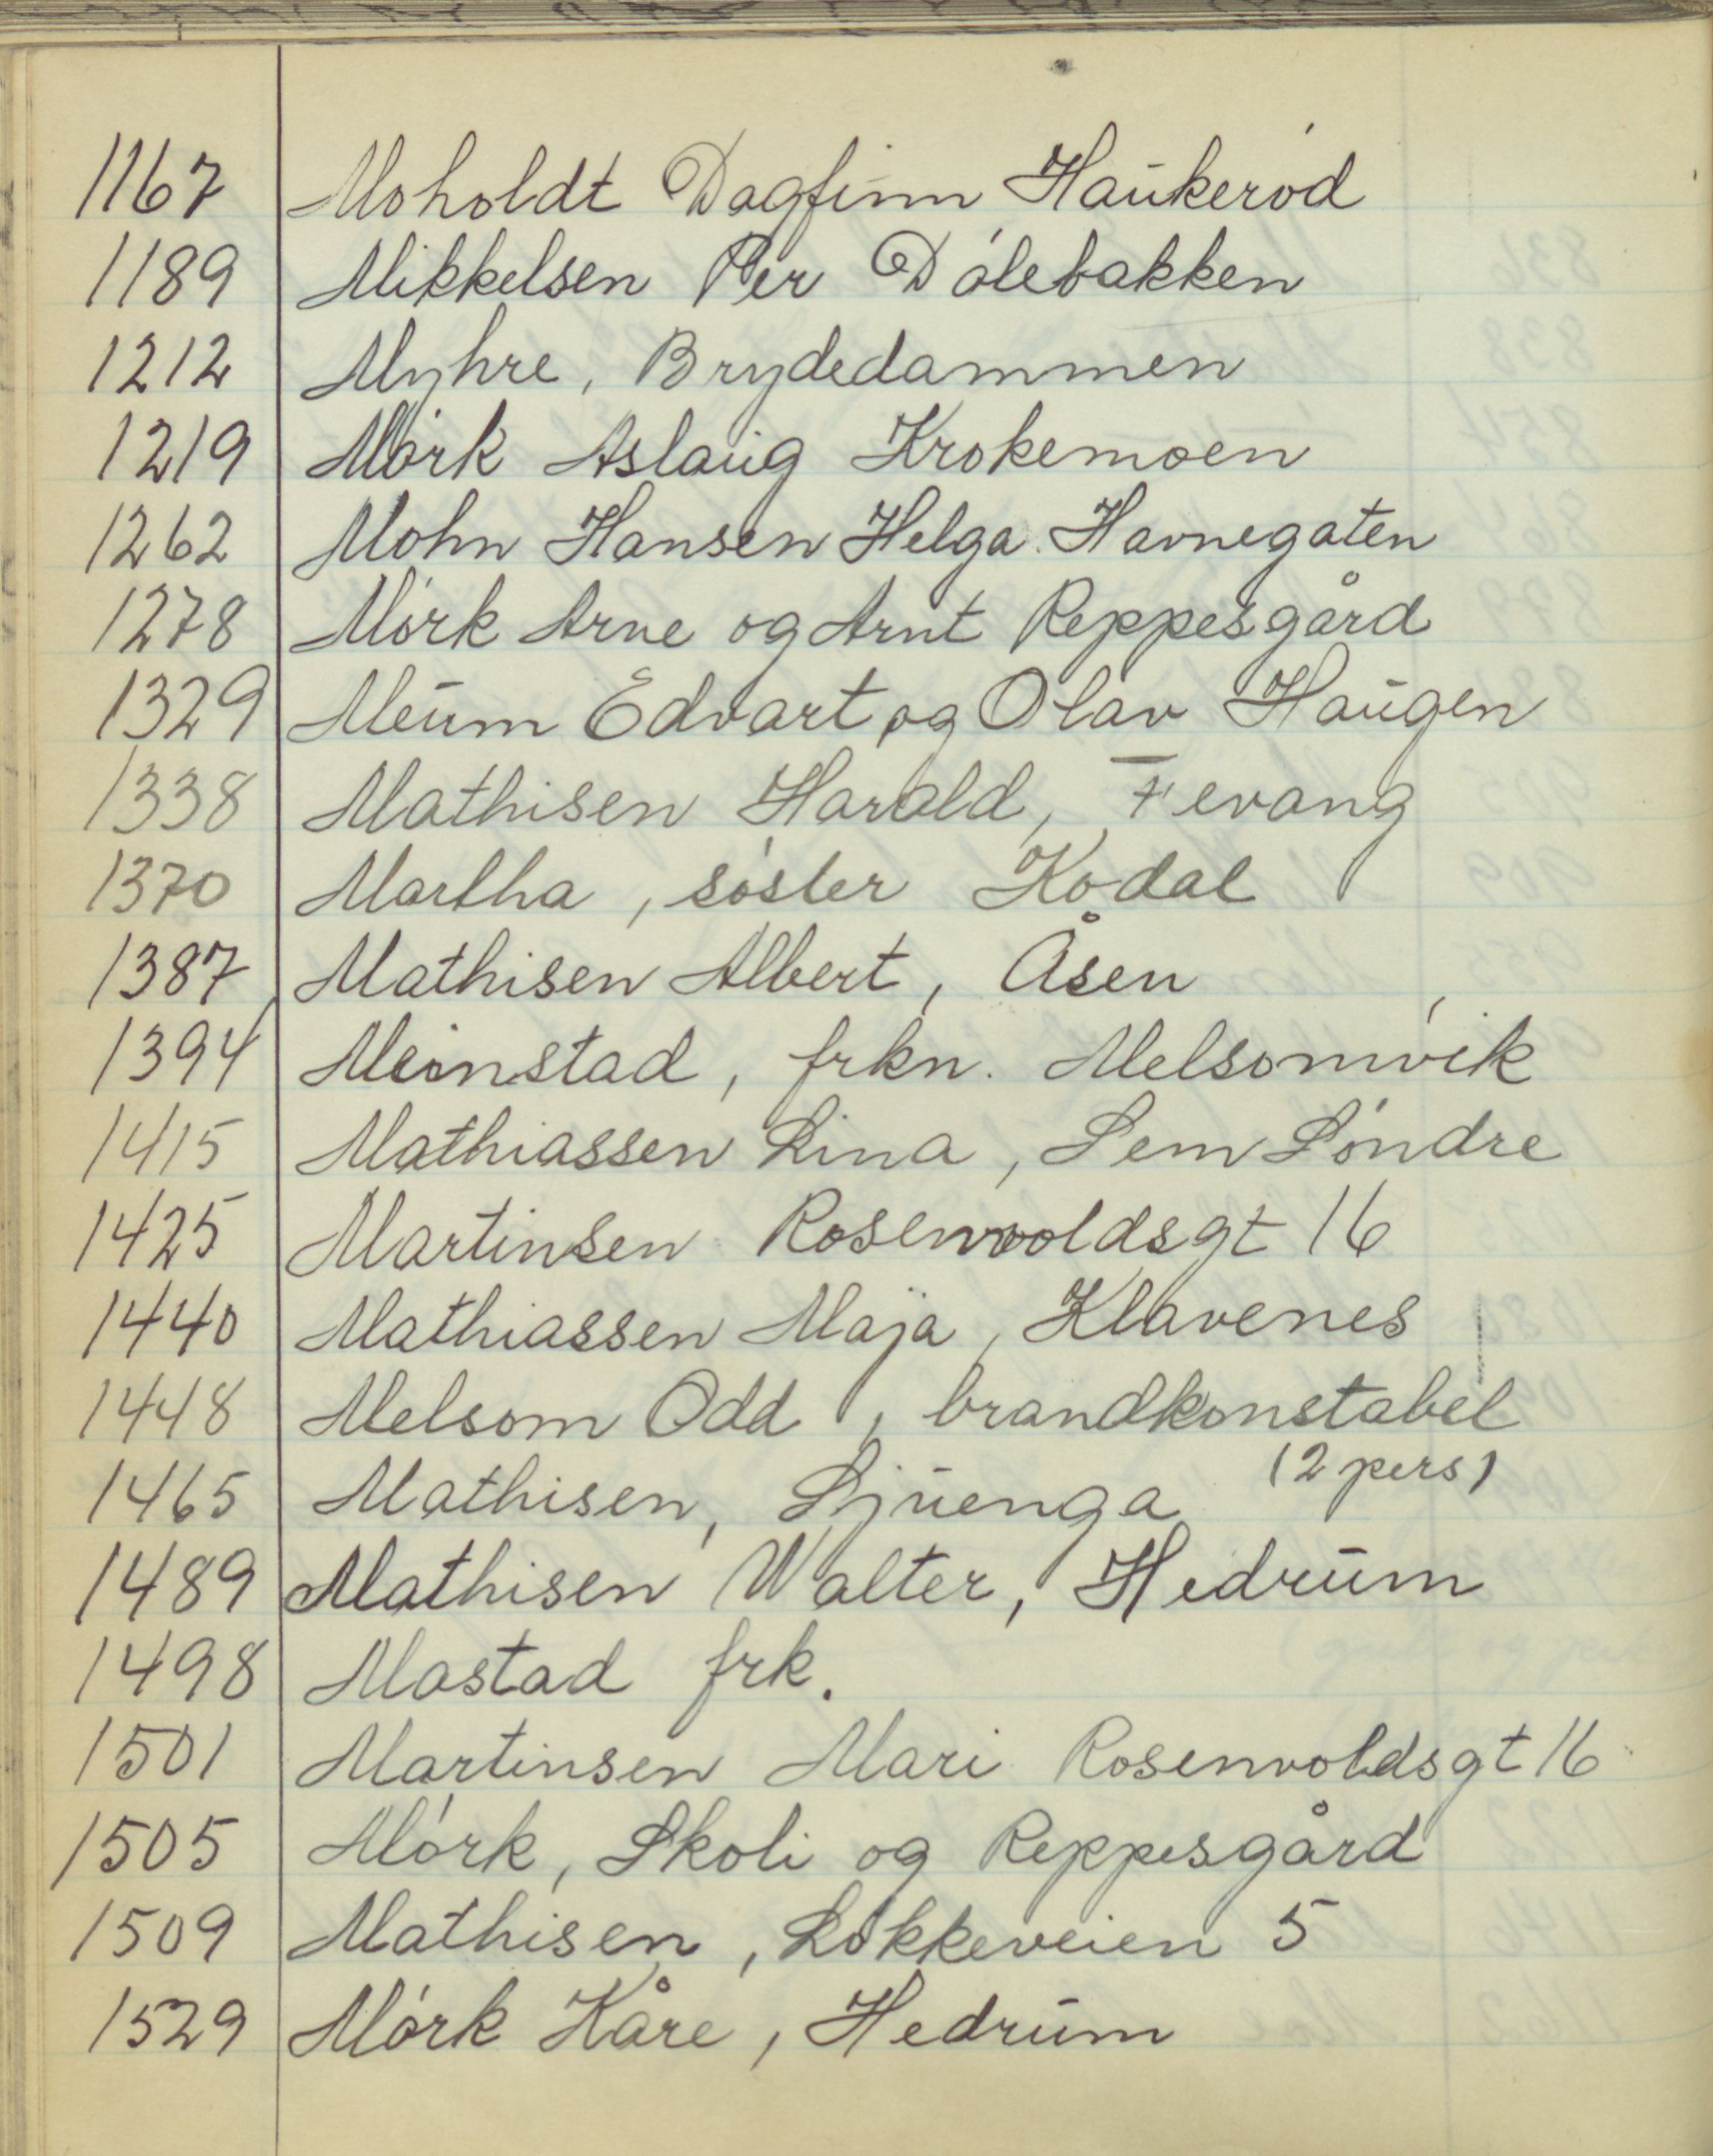 1167 Moholdt Dagfinn Haukeród
1189 Mikkelsen Per Dólebakken
1212 Myhre, Brydedammen
1219 Mórk Aslaug Krokemoen
1262 Mohn Hansen Helga. Havnegaten
1278 Mórk Arne og Arnt Reppesgård
1329 Meum Edvart og Olav Haugen
1338 Mathisen Harald, Fevang
1370 Martha, sóster Kodal
1387 Mathisen Albert, Åsen
1394 Meinstad, frkn. Melsomvik
1415 Mathiassen Lina, Sem Sóndre
1425 Martinsen Rosenvoldsgt 16
1440 Mathiassen Maja, Klavenes
1448 Melsom Odd, brandkonstabel
(2 pers)
1465 Mathisen, Sjuenga
1489 Mathisen Walter, Hedrum
1498 Mastad frk.
1501 Martinsen Mari Rosenvoldsgt 16
1505 Mórk, Skoli og Reppesgård
1509 Mathisen, Lókkeveien 5
1529 Mórk Kåre, Hedrum